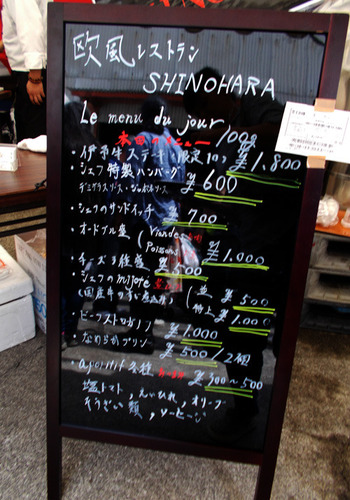 欧風レストラン
SHINOHARA
Le menu du jour
本日のメニュー 100g
・伊予牛ステーキ(限定10) ¥1,800
・シェフ特製ハンバーグ ¥600
デミグラスソース・
・シェフのサンドイッチ ¥700
・オードブル盛 (Viande Poisson) ¥1,000
・チーズ3種盛 ¥500
・シェフのmijoté (並 ¥500
(国産牛の 煮込み) 特上 ¥1,000
・ビーフストロガノフ ¥1,000
・なめらかプリン ¥500/2個
・aperitif 各種 ¥300~500
塩トマト,えいひれ,オリーブ
そうざい類,ソーセージ